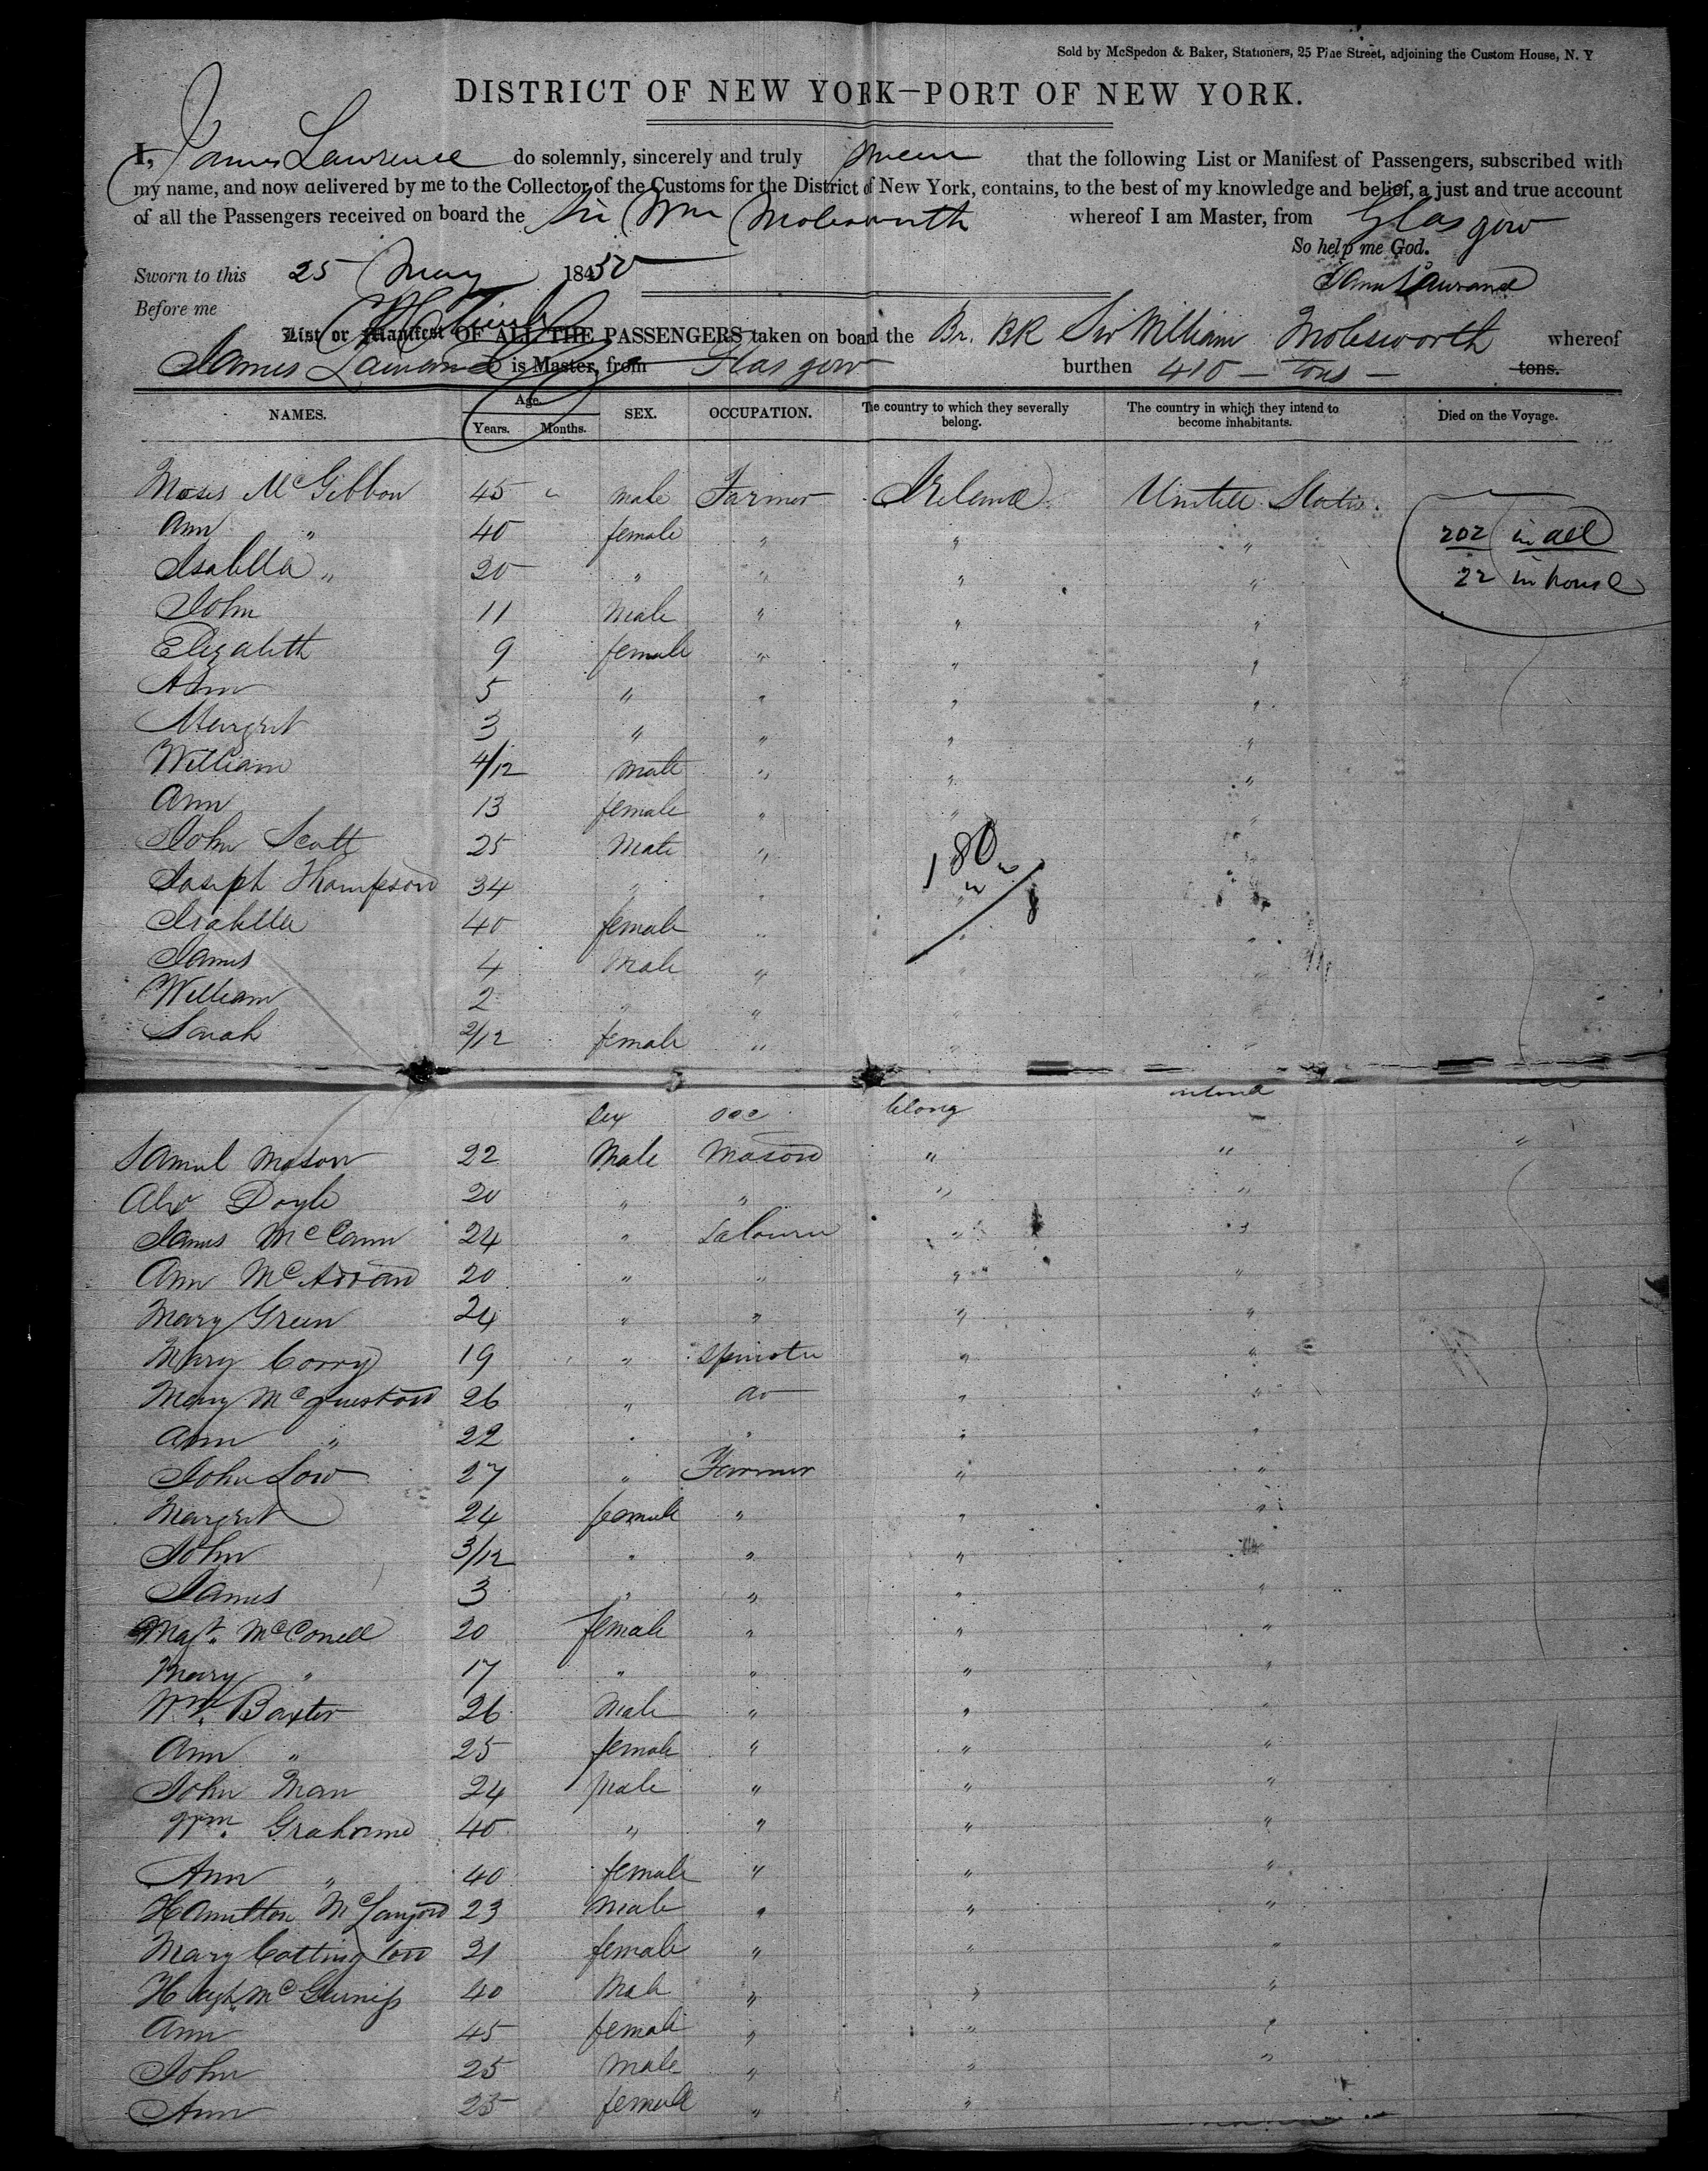 Sold by McSpedon & Baker, Stationers, 25 Pine Street, adjoining the Custom House, N. Y
DISTRICT OF NEW YORK—PORT OF NEW YORK.
I, James Lawrence do solemnly, sincerely and truly swear that the following List or Manifest of Passengers, subscribed with
my name, and now delivered by me to the Collector of the Customs for the District of New York, contains, to the best of my knowledge and belief, a just and true account
of all the Passengers received on board the Sir Wm Molesworth whereof I am Master, from Glasgow
So help me God.
Sworn to this 25 May 1850 James Lawrance
Before me
List or Manifest OF ALL THE PASSENGERS taken on board the Br. BK Sir William Molesworth whereof
James Lawrance is Master, from Glasgow burthen 410 — tons — tons.
NAMES. Age. Years. Months. SEX. OCCUPATION. The country to which they severally belong. The country in which they intend to become inhabitants. Died on the Voyage.
Moses McGibbon 45 male Farmer Ireland United States
Ann " 40 female " " " 202 in all
Isabella " 20 " " " " 22 in house
John 11 Male " " "
Elizabeth 9 female " " "
Ann 5 " " " "
Margret 3 " " " "
William 4/12 male " " "
Ann 13 female " " "
John Scott 25 Male " " "
Joseph Thompson 34 " " " "
180
Isabella 40 female " " "
James 4 Male " " "
William 2 " " " "
Sarah 2/12 female " " "
Sex occ belong intend
Samul Mason 22 Male Mason " " "
Alex Doyle 20 " " " "
James McCann 24 " Labourer " "
Ann 20 " " " "
Mary Green 24 " " " "
Mary Corry 19 " Spinster " "
Mary McQuestion 26 " do " "
Ann " 22 " " " "
John Low 27 " Farmer " "
Margret 24 female " " "
John 3/12 " " " "
James 3 " " " "
Magt. McConell 20 female " " "
Mary " 17 " " " "
Wm. Baxter 26 Male " " "
Ann " 25 female " " "
John Man 24 Male " " "
Wm. Grahame 40 " " " "
Ann " 40 female " " "
Hamilton 23 Male " " "
Mary Cottington 21 female " " "
Hugh 40 Male " " "
Ann 45 female " " "
John 25 Male " " "
Ann 25 female " "